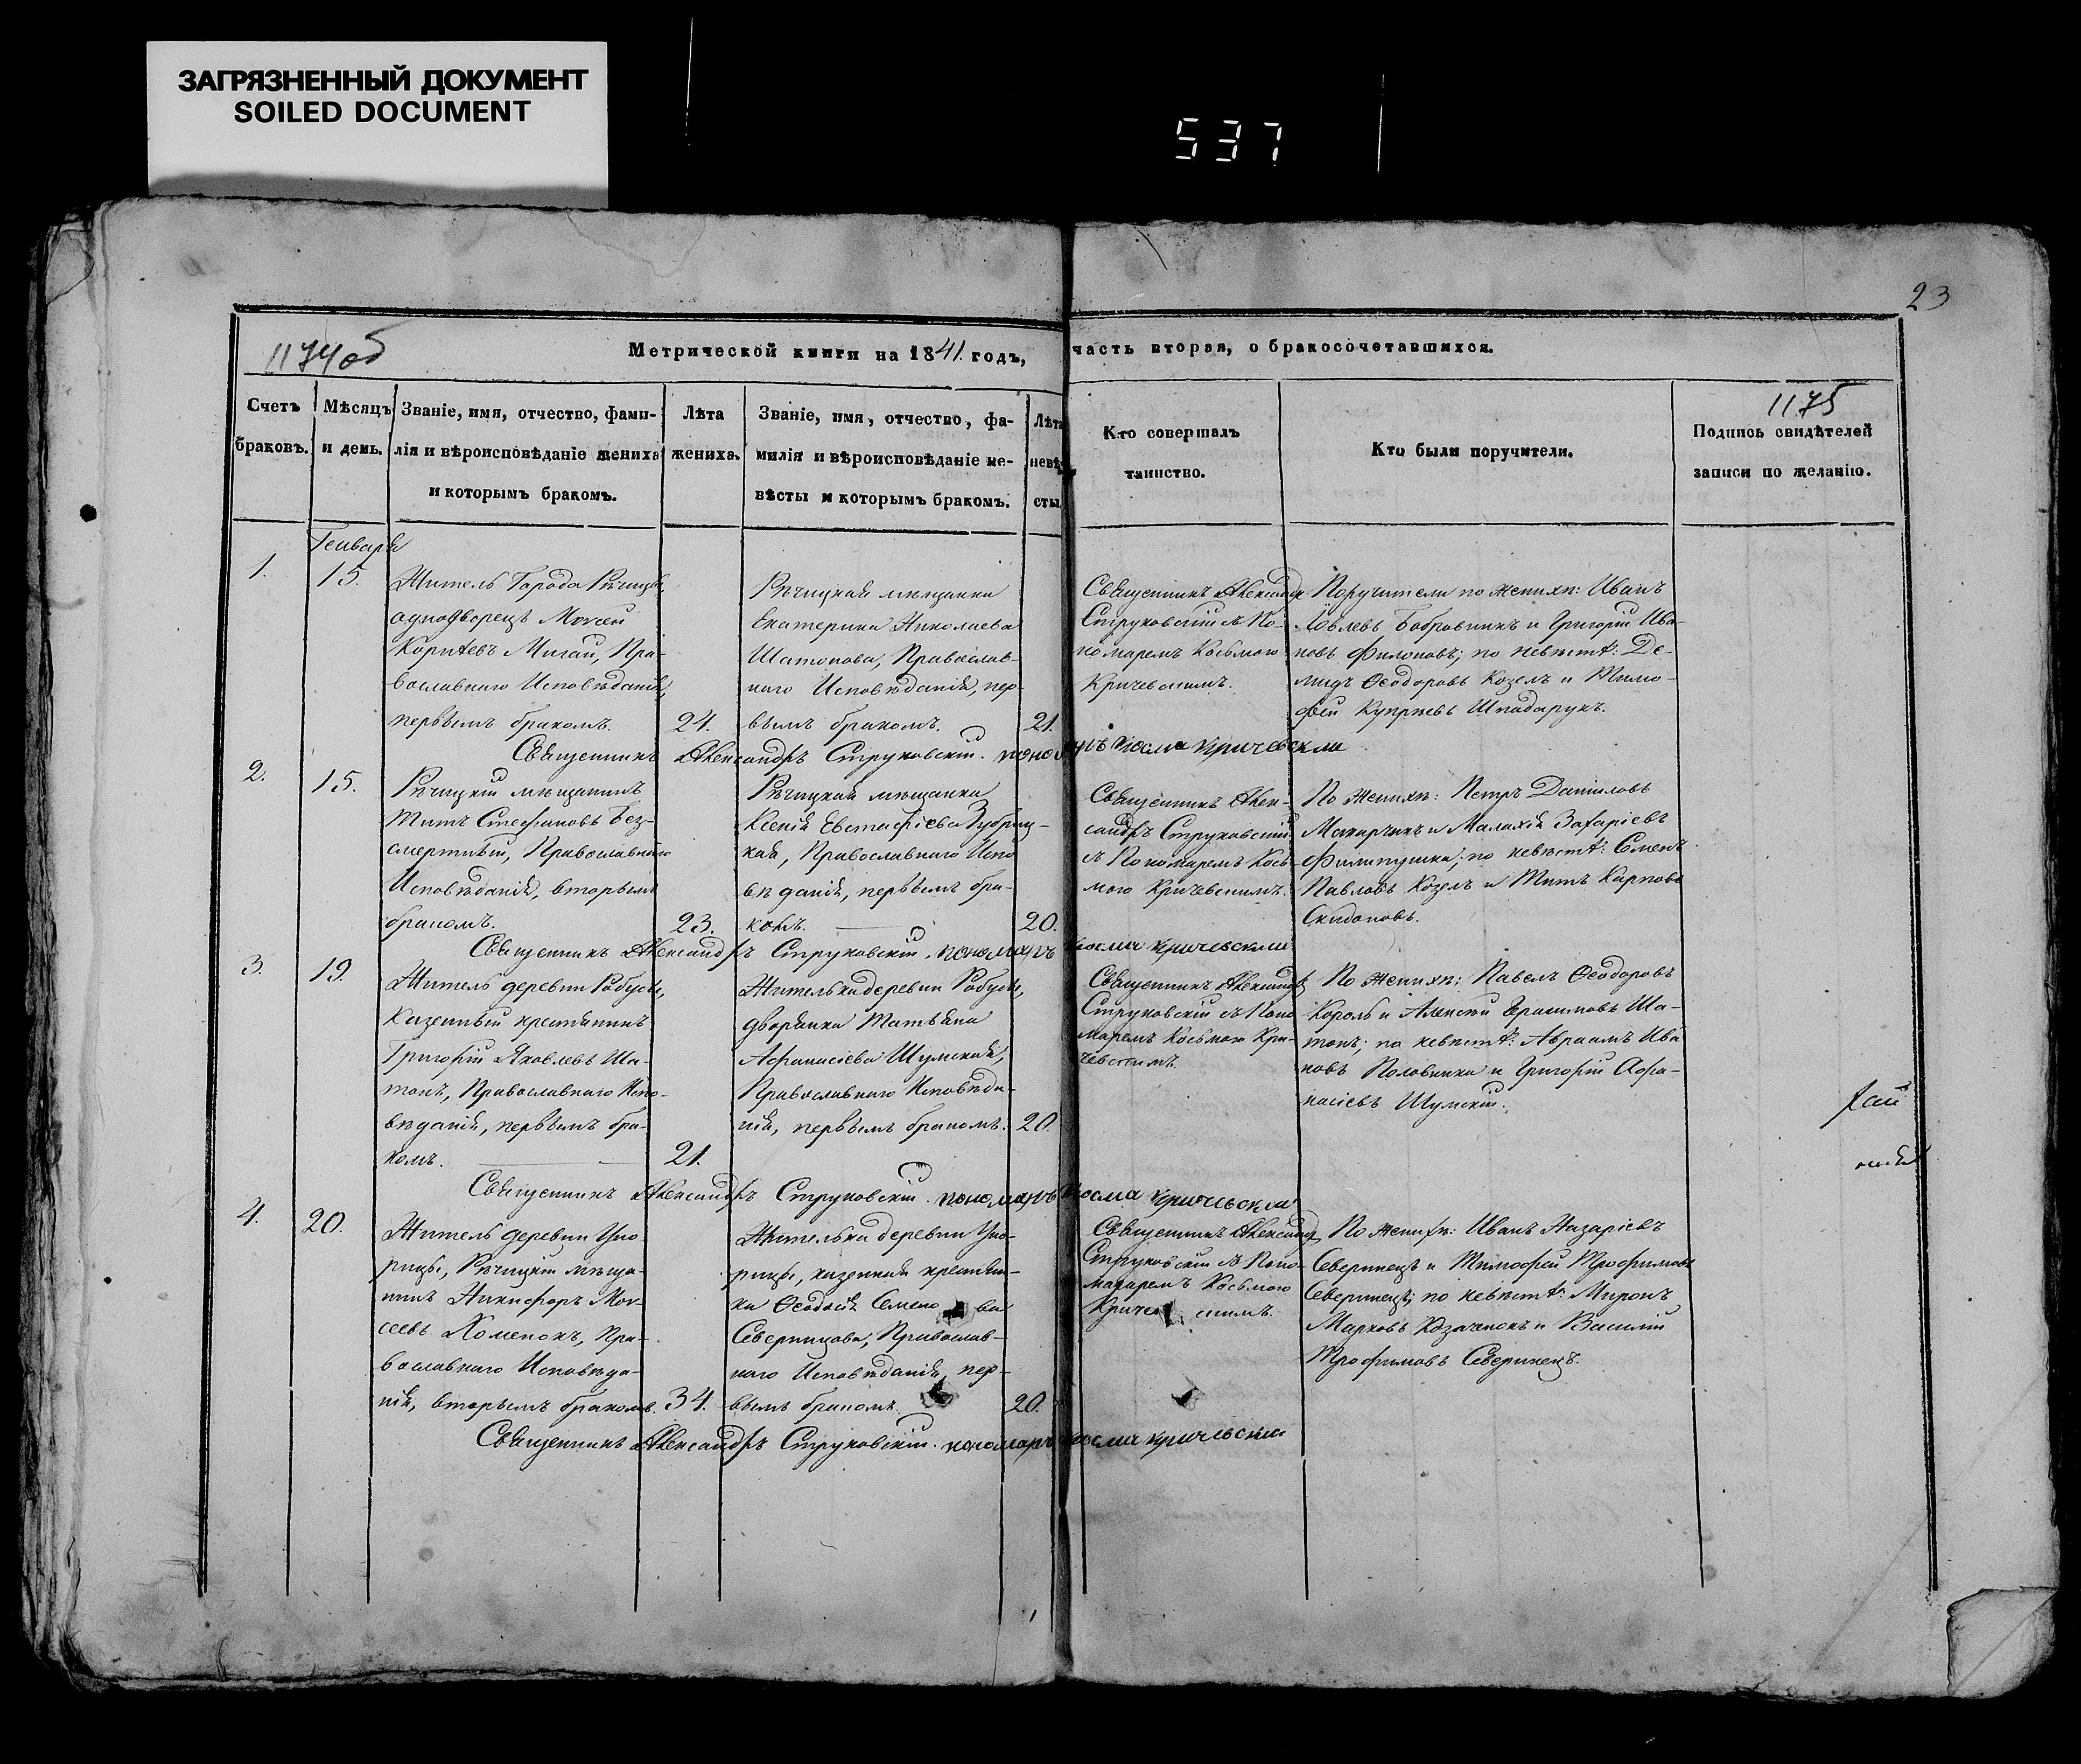 ЗАГРЯЗНЕННЫЙ ДОКУМЕНТ
SOILED DOCUMENT
537
23
1174об
Метрической книги на 1841. годъ, часть вторая, о бракосочетавшихся.
1175
Счетъ браковъ.
Мѣсяцъ и день.
Званіе, имя, отчество, фами-
лія и вѣроисповѣданіе жениха
и которымъ бракомъ.
Лѣта
жениха.
Званіе, имя, отчество, фа-
милія и вѣроисповѣданіе не-
вѣсты и которымъ бракомъ.
Лѣта
невѣ
сты
Кто совершалъ
таинство.
Кто были поручители.
Подпись свидѣтелей
записи по желанію.
Генваря
1.
15.
Житель Города Рѣчицы,
однодворецъ Моѵсей
Мигай, Пра-
вославнаго Исповѣданія,
первымъ бракомъ.
24.
Рѣчицкая мѣщанка
Екатерина Николаева
Шатонова, Православ-
наго Исповѣданія, пер-
вымъ бракомъ.
21.
Священникъ Александръ
Струковскій съ По-
номаремъ Косьмою
Кричевскимъ.
Поручители по женихѣ: Иванъ
Бобровникъ и Григорій Ива-
новъ Филоновъ; по невѣстѣ: Де-
мидъ Ѳеодоровъ Козелъ и Тимо-
фей Купрѣевъ
Священникъ Александръ Струковскій. пономарь Косма Кричевскій
2.
15.
Рѣчицкій мѣщанинъ
Титъ Стефановъ Без-
смертный, Православнаго
Исповѣданія, вторымъ
бракомъ.
23.
Рѣчицкая мѣщанка
Ксенія Евстафіева Зубриц-
кая, Православнаго Испо
вѣданія, первымъ бра-
комъ.
20.
Священникъ Алек-
сандръ Струковскій
съ Пономаремъ Кось-
мою Кричевскимъ.
По женихѣ: Петръ Даниловъ
Макарчикъ и Малахій Захаріевъ
Филипушка; по невѣстѣ: Семенъ
Павловъ Козелъ и Титъ Карповъ
Скидановъ.
Священникъ Александръ Струковскій. пономарь Косма Кричевскій
3.
19.
Житель деревни Робуси,
Казенный крестьянинъ
Григорій Яковлевъ Ша-
тонъ, Православнаго Испо-
вѣданія, первымъ бра-
комъ.
21.
Жителька деревни Робуси,
дворянка Татьяна
Афанасіева Шумская,
Православнаго Исповѣда-
нія, первымъ бракомъ.
20.
Священникъ Александръ
Струковскій съ Поно
маремъ Косьмою Кри-
чевскимъ.
По женихѣ: Павелъ Ѳеодоровъ
Король и Алексѣй Герасимовъ Ша-
тонъ; по невѣстѣ: Авраамъ Ива
новъ Половинка и Григорій Афа-
насіевъ Шумскій.
Священникъ Александръ Струковскій. пономарь Косма Кричевскій
4.
20.
Житель деревни Уно-
рицы, Рѣчицкій мѣща-
нинъ Никифоръ Моѵ-
сеевъ Хоменокъ, Пра-
вославнаго Исповѣда-
нія, вторымъ бракомъ.
34.
Жителька деревни Уно-
рицы, казенная крестьян-
ка Ѳеодосія Семено ва
Северинцова, Православ-
наго Исповѣданія, пер-
вымъ бракомъ.
20.
Священникъ Александръ
Струковскій съ Поно-
маремъ Косьмою
Кричев скимъ.
По женихѣ: Иванъ Назаріевъ
Северинецъ и Тимофей Трофимовъ
Северинецъ; по невѣстѣ: Миронъ
Марковъ Козаченокъ и Василій
Трофимовъ Северинецъ.
Священникъ Александръ Струковскій. пономарь Косма Кричевскій